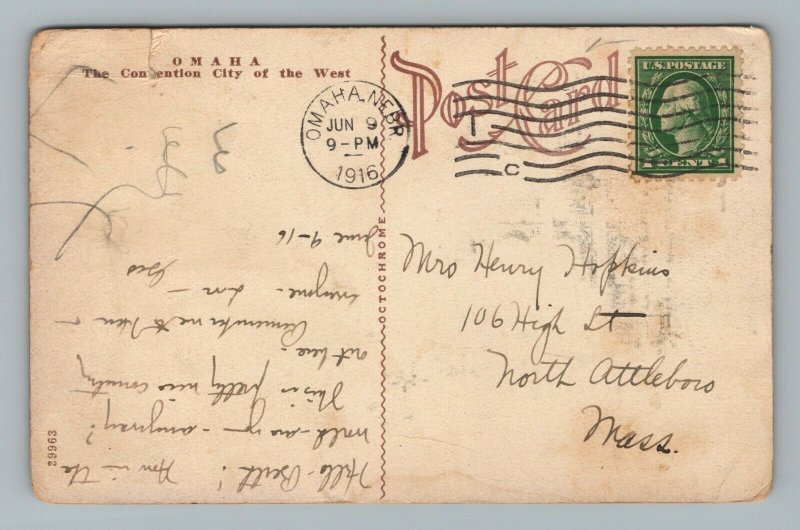 OMAHA
The Convention City of the West
Post Card
OMAHA, NEBR.
JUN 9
9-PM
1916
1
C
U.S. POSTAGE
1 CENT 1
OCTOCHROME
29963
Mrs Henry Hopkins
106 High St
North Attleboro
Mass.
June 9-16
Hello Berth! How in the
world - are you - anyway?
This is pretty nice country
out here -
Remember me to Hen -
everyone - Love -
Geo